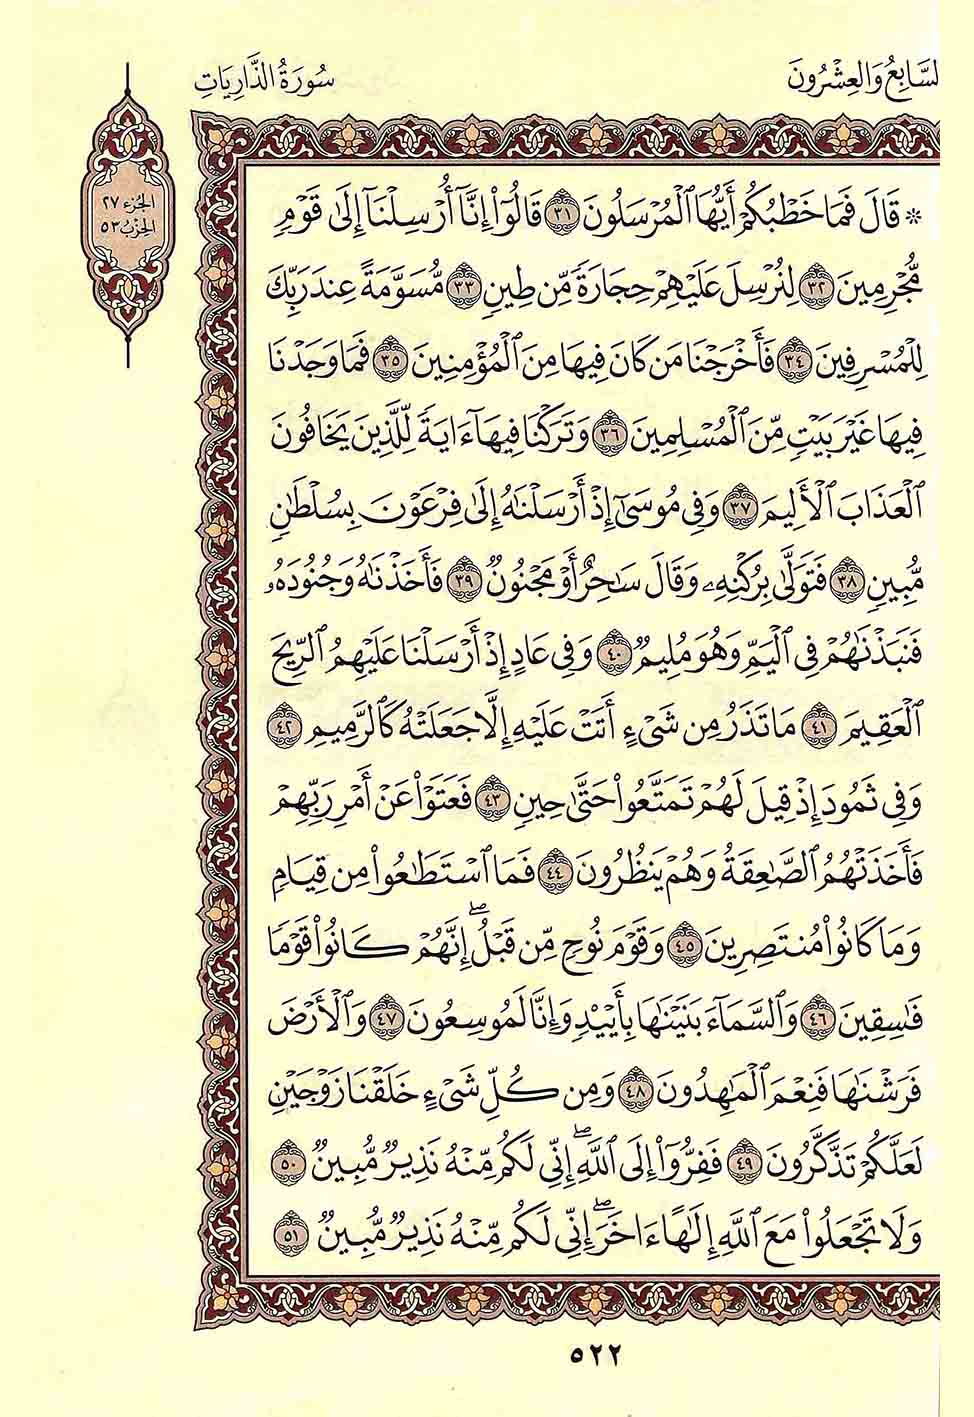 لسَّابِعُ وَالعِشْرُونَ
سُورَةُ الذَّارِيَاتِ
الجُزء ٢٧
الحِزب ٥٣
۞ قَالَ فَمَا خَطْبُكُمْ أَيُّهَا ٱلْمُرْسَلُونَ ٣١ قَالُوٓا۟ إِنَّآ أُرْسِلْنَآ إِلَىٰ قَوْمٍ
مُّجْرِمِينَ ٣٢ لِنُرْسِلَ عَلَيْهِمْ حِجَارَةً مِّن طِينٍ ٣٣ مُّسَوَّمَةً عِندَ رَبِّكَ
لِلْمُسْرِفِينَ ٣٤ فَأَخْرَجْنَا مَن كَانَ فِيهَا مِنَ ٱلْمُؤْمِنِينَ ٣٥ فَمَا وَجَدْنَا
فِيهَا غَيْرَ بَيْتٍ مِّنَ ٱلْمُسْلِمِينَ ٣٦ وَتَرَكْنَا فِيهَآ ءَايَةً لِّلَّذِينَ يَخَافُونَ
ٱلْعَذَابَ ٱلْأَلِيمَ ٣٧ وَفِى مُوسَىٰٓ إِذْ أَرْسَلْنَٰهُ إِلَىٰ فِرْعَوْنَ بِسُلْطَٰنٍ
مُّبِينٍ ٣٨ فَتَوَلَّىٰ بِرُكْنِهِۦ وَقَالَ سَٰحِرٌ أَوْ مَجْنُونٌ ٣٩ فَأَخَذْنَٰهُ وَجُنُودَهُۥ
فَنَبَذْنَٰهُمْ فِى ٱلْيَمِّ وَهُوَ مُلِيمٌ ٤٠ وَفِى عَادٍ إِذْ أَرْسَلْنَا عَلَيْهِمُ ٱلرِّيحَ
ٱلْعَقِيمَ ٤١ مَا تَذَرُ مِن شَىْءٍ أَتَتْ عَلَيْهِ إِلَّا جَعَلَتْهُ كَٱلرَّمِيمِ ٤٢
وَفِى ثَمُودَ إِذْ قِيلَ لَهُمْ تَمَتَّعُوا۟ حَتَّىٰ حِينٍ ٤٣ فَعَتَوْا۟ عَنْ أَمْرِ رَبِّهِمْ
فَأَخَذَتْهُمُ ٱلصَّٰعِقَةُ وَهُمْ يَنظُرُونَ ٤٤ فَمَا ٱسْتَطَٰعُوا۟ مِن قِيَامٍ
وَمَا كَانُوا۟ مُنتَصِرِينَ ٤٥ وَقَوْمَ نُوحٍ مِّن قَبْلُ ۖ إِنَّهُمْ كَانُوا۟ قَوْمًا
فَٰسِقِينَ ٤٦ وَٱلسَّمَآءَ بَنَيْنَٰهَا بِأَيْي۟دٍ وَإِنَّا لَمُوسِعُونَ ٤٧ وَٱلْأَرْضَ
فَرَشْنَٰهَا فَنِعْمَ ٱلْمَٰهِدُونَ ٤٨ وَمِن كُلِّ شَىْءٍ خَلَقْنَا زَوْجَيْنِ
لَعَلَّكُمْ تَذَكَّرُونَ ٤٩ فَفِرُّوٓا۟ إِلَى ٱللَّهِ ۖ إِنِّى لَكُم مِّنْهُ نَذِيرٌ مُّبِينٌ ٥٠
وَلَا تَجْعَلُوا۟ مَعَ ٱللَّهِ إِلَٰهًا ءَاخَرَ ۖ إِنِّى لَكُم مِّنْهُ نَذِيرٌ مُّبِينٌ ٥١
٥٢٢